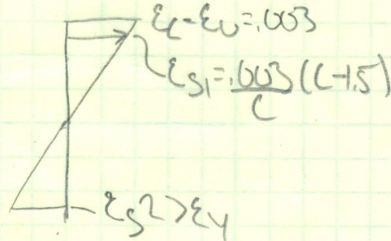 εc=εu=.003
εs1=.003/c (c-1.5)
εs2>εy